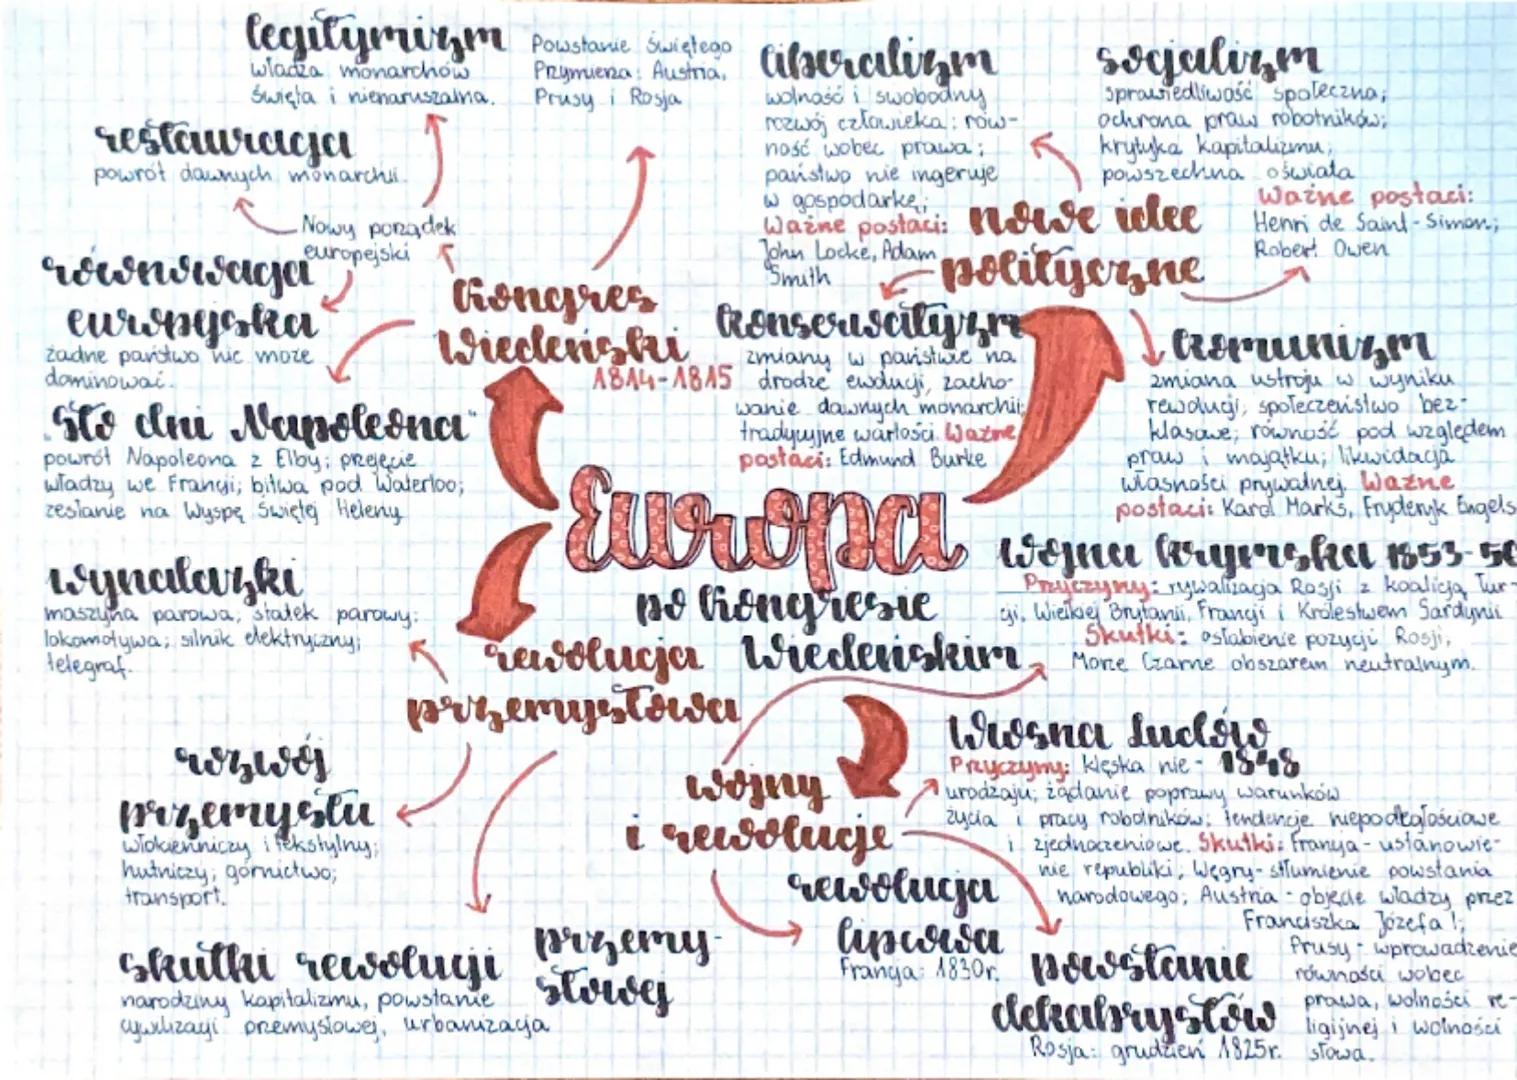 legitymizm
władza monarchów
święta i nienaruszalna.
Powstanie Świętego
Przymierza: Austria,
Prusy i Rosja
restauracja
powrót dawnych monarchii.
Nowy porządek
europejski
równowaga
europejska
żadne państwo nie może
dominować.
Kongres
Wiedeński
1814-1815
"Sto dni Napoleona"
powrót Napoleona z Elby; przejęcie
władzy we Francji; bitwa pod Waterloo;
zesłanie na Wyspę Świętej Heleny
liberalizm
wolność i swobodny
rozwój człowieka; rów-
ność wobec prawa;
państwo nie ingeruje
w gospodarkę;
Ważne postaci:
John Locke, Adam
Smith
socjalizm
sprawiedliwość społeczna;
ochrona praw robotników;
krytyka kapitalizmu;
powszechna oświata
Ważne postaci:
Henri de Saint-Simon;
Robert Owen
nowe idee
polityczne
konserwatyzm
zmiany w państwie na
drodze ewolucji, zacho-
wanie dawnych monarchii;
tradycyjne wartości. Ważne
postaci: Edmund Burke
komunizm
zmiana ustroju w wyniku
rewolucji, społeczeństwo bez-
klasowe; równość pod względem
praw i majątku; likwidacja
własności prywatnej. Ważne
postaci: Karol Marks, Fryderyk Engels
Europa
po Kongresie
Wiedeńskim
wynalazki
maszyna parowa; statek parowy;
lokomotywa; silnik elektryczny;
telegraf.
rewolucja
przemysłowa
rozwój
przemysłu
włókienniczy i tekstylny;
hutniczy; górnictwo;
transport.
skutki rewolucji
przemy-
słowej
narodziny kapitalizmu, powstanie
cywilizacji przemysłowej, urbanizacja
Wojna krymska 1853-56
Przyczyny: rywalizacja Rosji z koalicją Tur-
cji, Wielkiej Brytanii, Francji i Królestwem Sardynii
Skutki: osłabienie pozycji Rosji,
Morze Czarne obszarem neutralnym.
wojny
i rewolucje
Wiosna Ludów
1848
Przyczyny: klęska nie-
urodzaju; żądanie poprawy warunków
życia i pracy robotników; tendencje niepodległościowe
i zjednoczeniowe. Skutki: Francja - ustanowie-
nie republiki; Węgry - stłumienie powstania
narodowego; Austria - objęcie władzy przez
Franciszka Józefa I;
Prusy - wprowadzenie
równości wobec
prawa, wolności re-
ligijnej i wolności
słowa.
rewolucja
lipcowa
Francja: 1830r.
powstanie
dekabrystów
Rosja: grudzień 1825r.